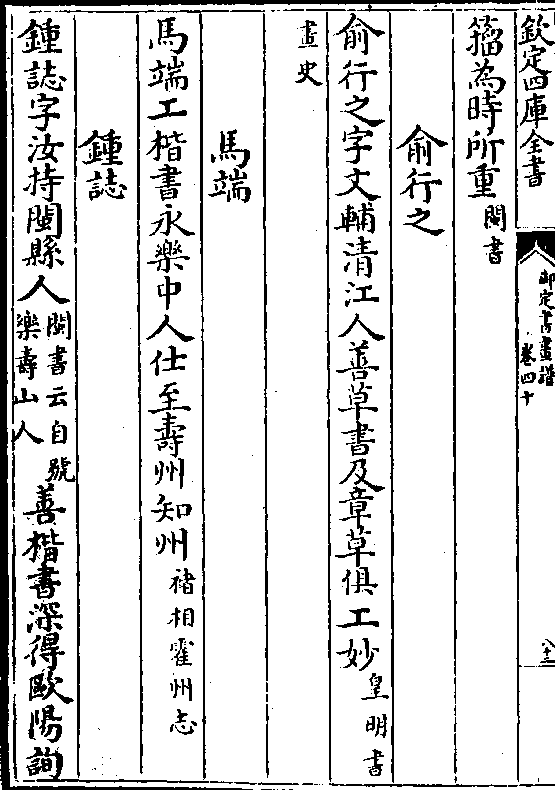 欽定四庫全書
御定書畫譜
卷四十
八十三
籀為時所重閩書
俞行之
俞行之字文輔清江人善草書及章草俱工妙皇明書
畫史
馬端
馬端工楷書永樂中人仕至壽州知州褚相霍州志
鍾誌
鍾誌字汝持閩縣人閩書云自號樂壽山人善楷書深得歐陽詢